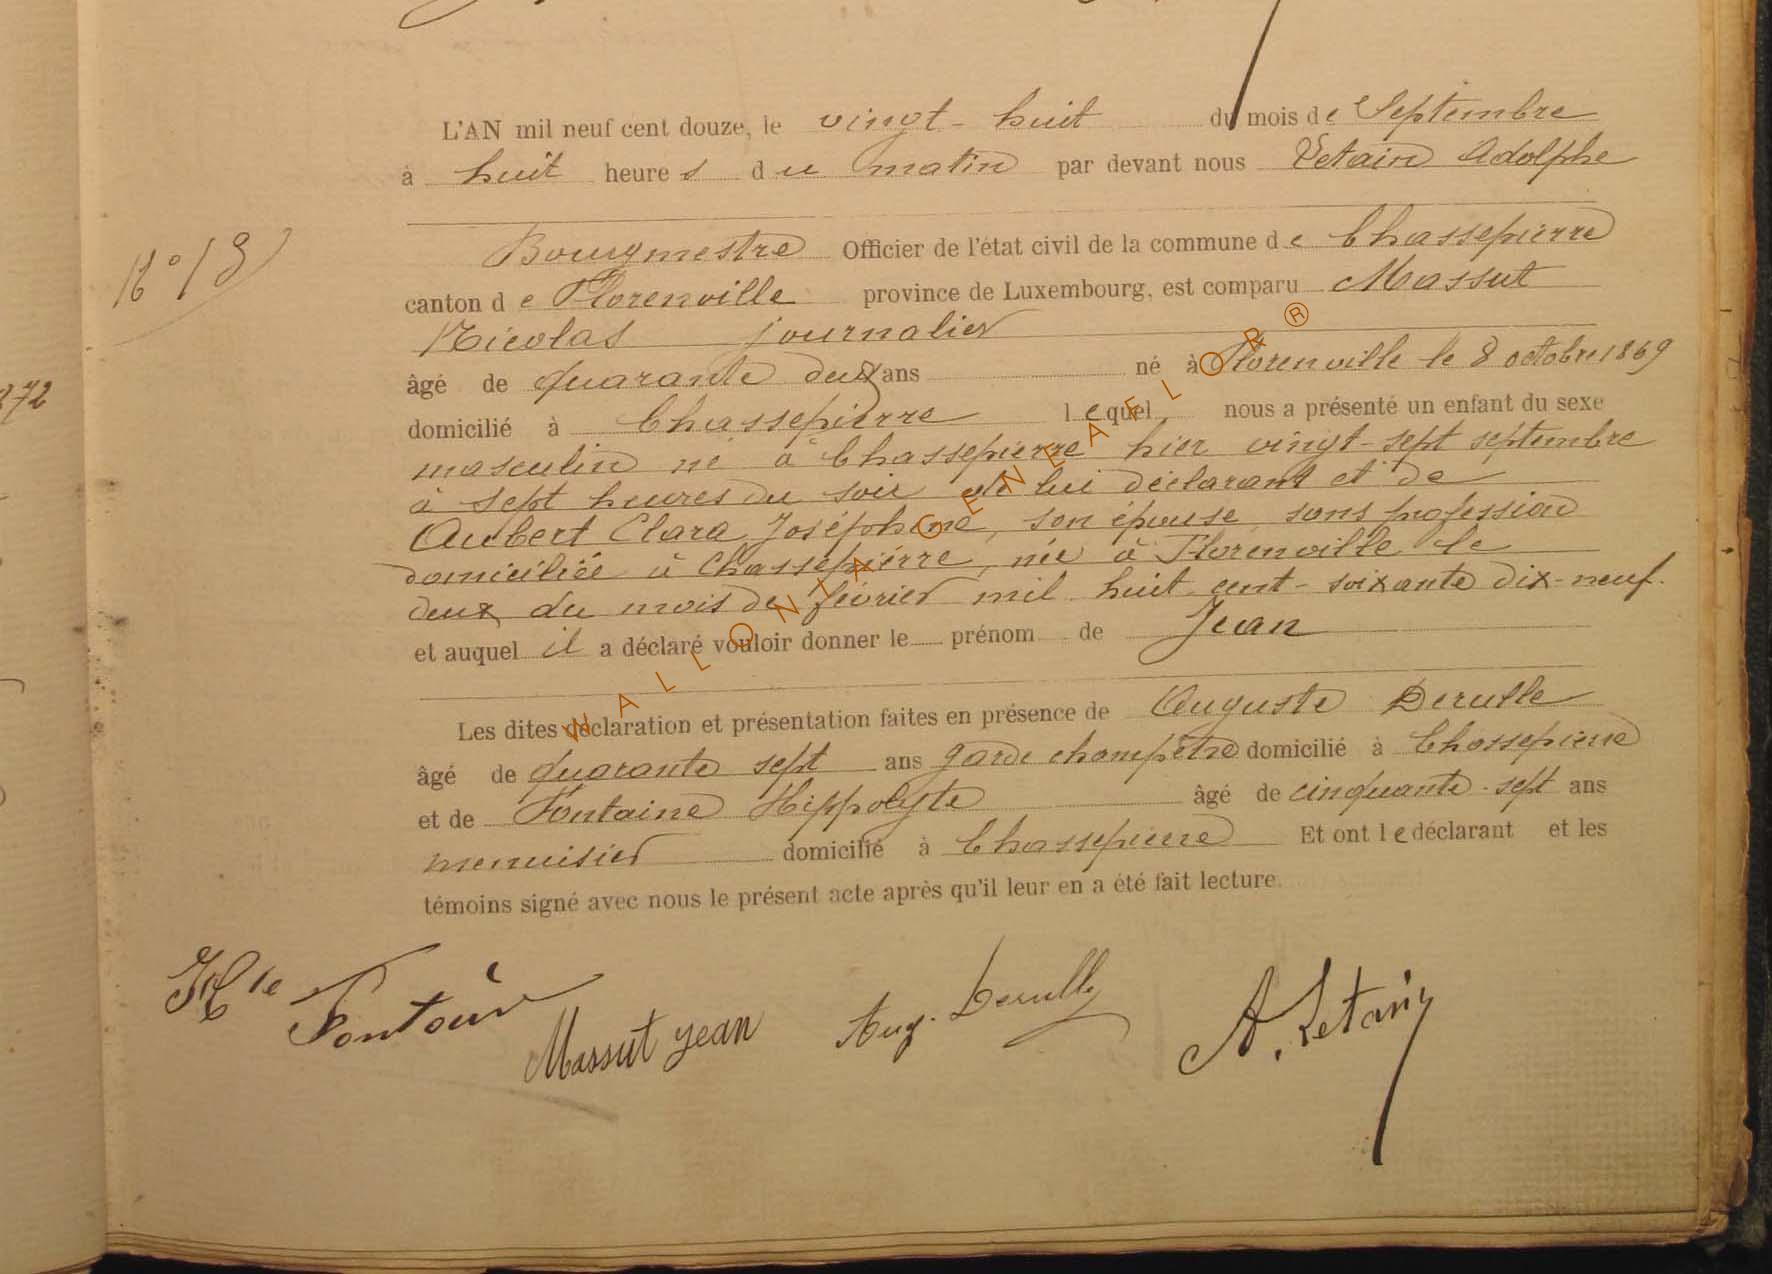 L'AN mil neuf cent douze, le vingt-huit du mois de Septembre
à huit heures du matin par devant nous Letain Adolphe
Bourgmestre Officier de l'état civil de la commune de Chassepierre
N° 13
canton de Florenville province de Luxembourg, est comparu Massut
Nicolas journalier
âgé de quarante deux ans né à Florenville le 8 octobre 1869
872
domicilié à Chassepierre lequel nous a présenté un enfant du sexe
masculin né à Chassepierre hier vingt-sept septembre
à sept heures du soir de lui déclarant et de
Aubert Clara Joséphine, son épouse, sans profession
domiciliée à Chassepierre, née à Florenville le
deux du mois de février mil huit cent-soixante dix-neuf.
et auquel il a déclaré vouloir donner le prénom de Jean
Les dites déclaration et présentation faites en présence de Auguste Derulle
âgé de quarante sept ans garde champêtre domicilié à Chassepierre
et de Fontaine Hippolyte âgé de cinquante-sept ans
menuisier domicilié à Chassepierre Et ont le déclarant et les
témoins signé avec nous le présent acte après qu'il leur en a été fait lecture.
Hte Fontain
Massut jean
Aug. Derulle
A. Letain
WALLONIA GENEAFLOR ®